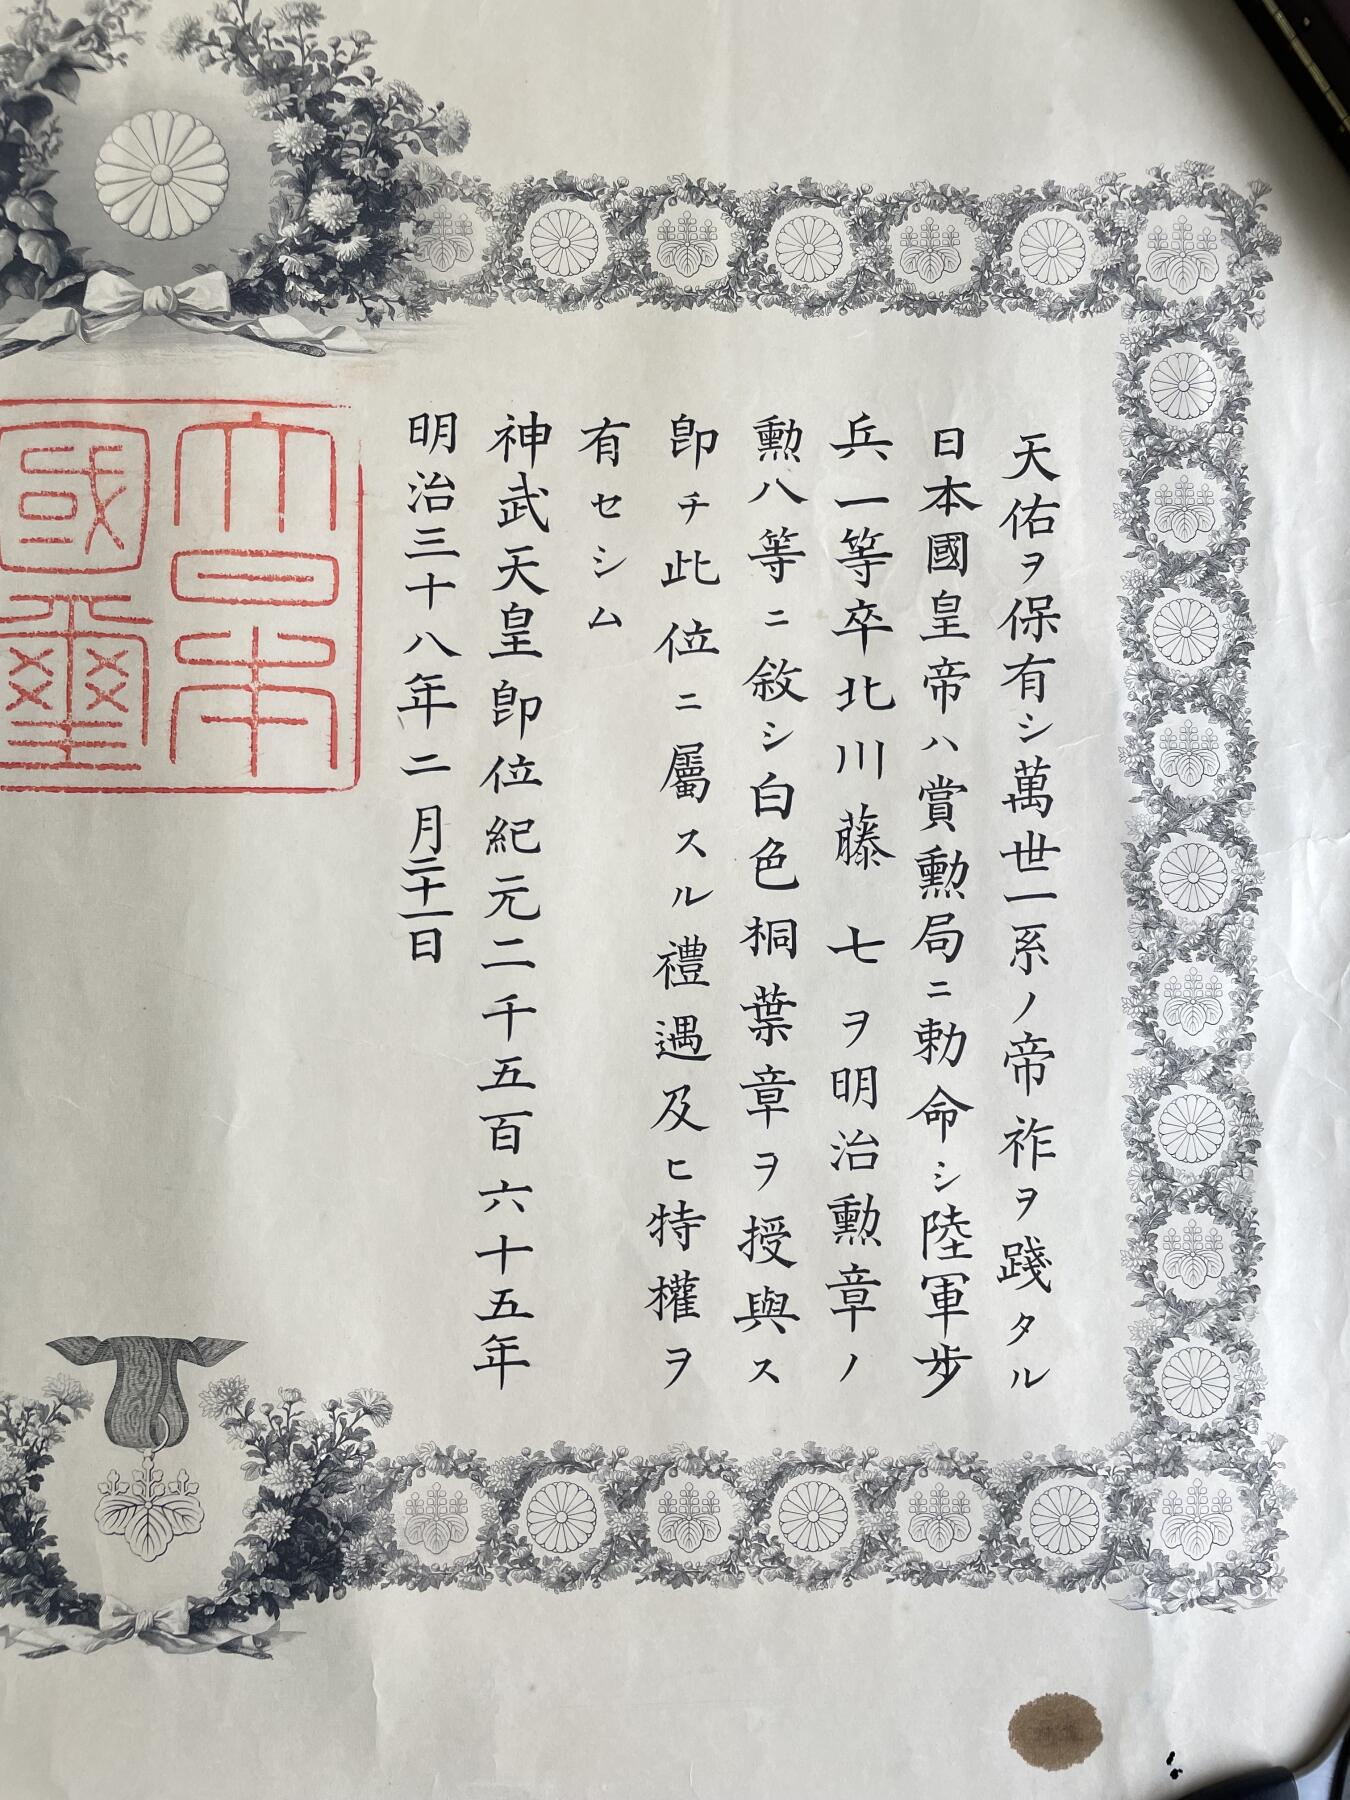 天佑ヲ保有シ萬世一系ノ帝祚ヲ踐タル
日本國皇帝ハ賞勲局ニ勅命シ陸軍歩
兵一等卒北川藤七ヲ明治勲章ノ
勲八等ニ敘シ白色桐葉章ヲ授與ス
即チ此位ニ屬スル禮遇及ヒ特權ヲ
有セシム
神武天皇即位紀元二千五百六十五年
明治三十八年二月二十一日
大日本
國璽